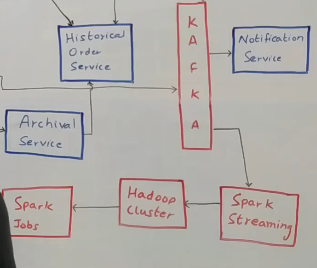 Historical
Order
Service
K
A
F
K
A
Notification
Service
Archival
Service
Spark
Jobs
Hadoop
Cluster
Spark
Streaming